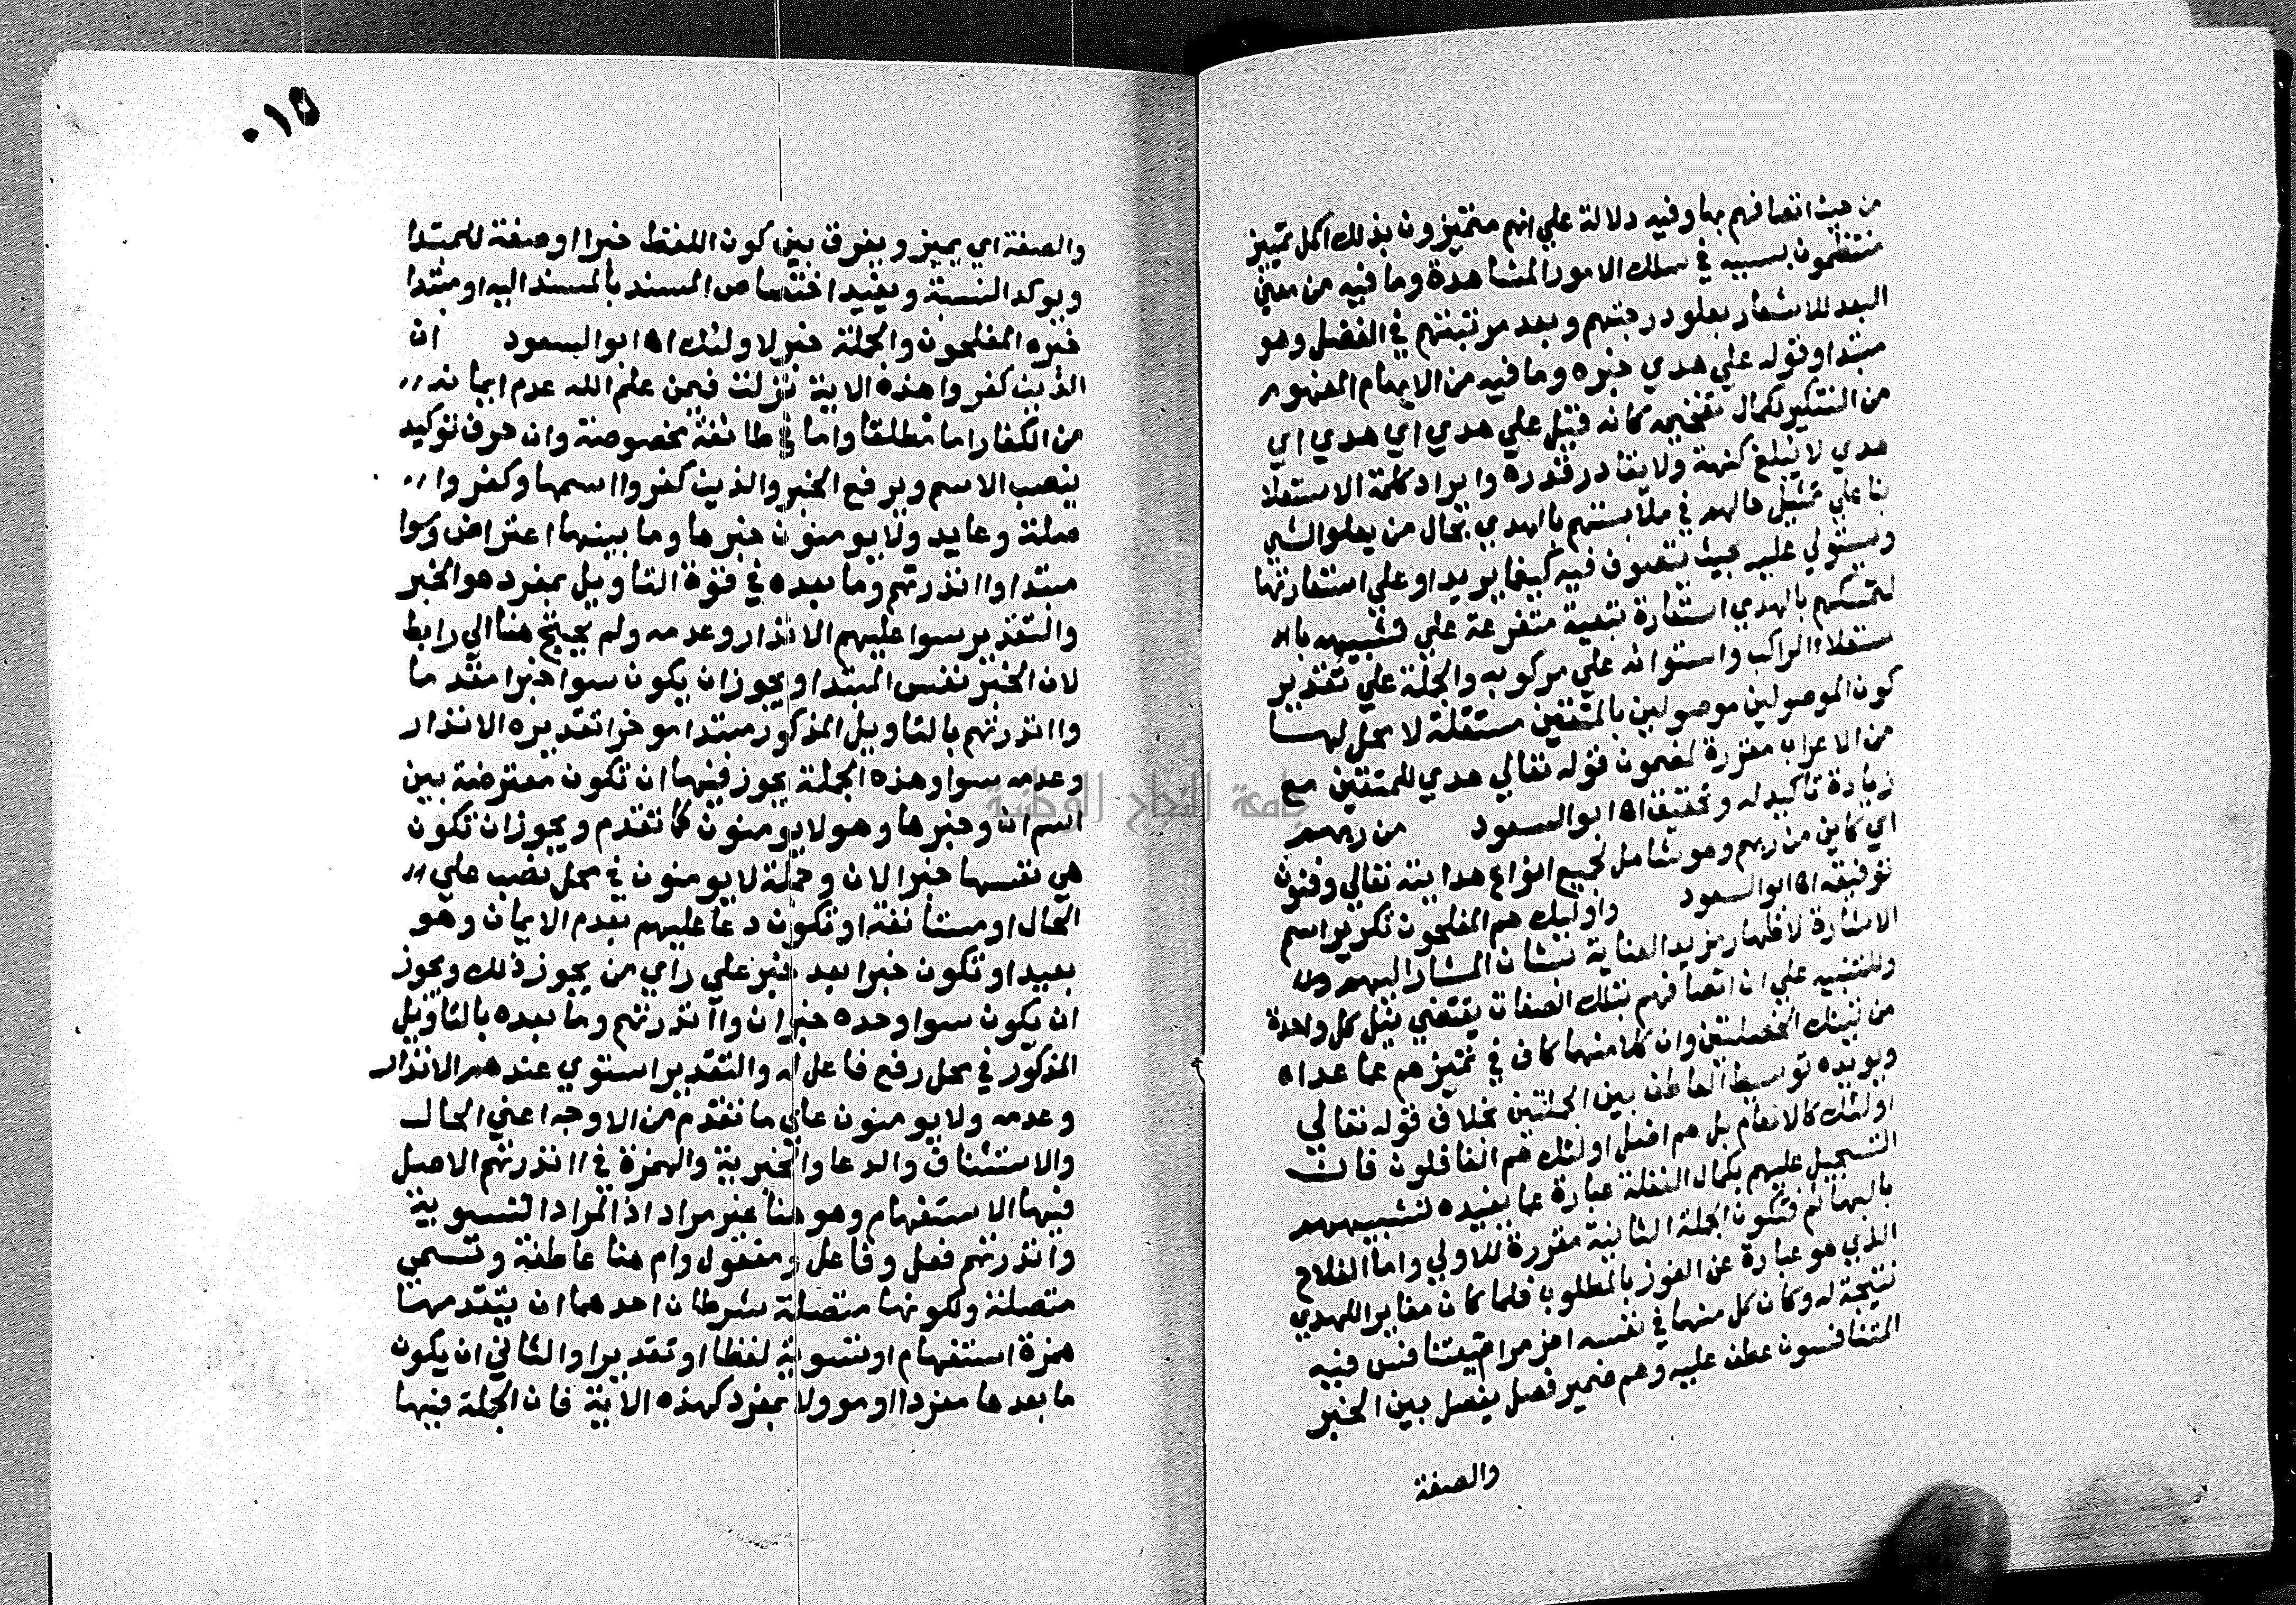 من حيث اتصافهم بها وفيه دلالة علي انهم متميزون بذلك اكمل تمييز
منتظمون بسببه في سلك الامور المشاهدة وما فيه من معني
البعد للاشعار بعلو درجتهم وبعد مرتبتهم في الفضل وهو
مبتدا وقوله علي هدي خبره وما فيه من الابهام المفهوم
من التنكير لكمال تفخيمه كانه قيل علي هدي اي هدي اي
هدي لا يبلغ كنهه ولا يقادر قدره وايراد كلمة الاستعلا
بنا علي تمثيل حالهم في ملابستهم بالهدي بحال من يعلو الشي
ويستولي عليه بحيث يتصرف فيه كيفما يريد او علي استعارتها
لتمسكهم بالهدي استعارة تبعية متفرعة علي تشبيهه با
ستعلاء الراكب واستوائه علي مركوبه والجملة علي تقدير
كون الموصولين موصولين بالمتقين مستقلة لا محل لها
من الاعراب مقررة لمضمون قوله تعالي هدي للمتقين مع
زيادة تاكيد له وتحقيق اه ابو السعود من ربهم
اي كاين من ربهم وهو شامل لجميع انواع هدايته تعالي وفنون
توفيقه اه ابو السعود واولئك هم المفلحون تكرير اسم
الاشارة لاظهار مزيد العناية بشان المشار اليهم
وللتنبيه علي ان اتصافهم بتلك الصفات يقتضي نيل كل واحدة
من تينك الخصلتين وان كلا منهما كاف في تميزهم عما عداه
ويويده توسيط العاطف بين الجملتين بخلاف قوله تعالي
اولئك كالانعام بل هم اضل اولئك هم الغافلون فان
التسجيل عليهم بكمال الغفلة عبارة عما يفيده تشبيههم
بالبهائم فتكون الجملة الثانية مقررة للاولي واما الفلاح
الذي هو عبارة عن الفوز بالمطلوب فلما كان مغايرا للهدي
نتيجة له وكان كل منهما في نفسه اعز مرام يتنافس فيه
المتنافسون عطف عليه وهم ضمير فصل يفصل بين الخبر
والصفة
٠١٥
والصفة اي يميز ويفرق بين كون اللفظ خبرا او صفة للمبتدا
ويوكد النسبة ويفيد اختصاص المسند بالمسند اليه او مبتدا
خبره المفلحون والجملة خبر لاولئك اه ابو السعود ان
الذين كفروا هذه الاية نزلت فيمن علم الله عدم ايمانه
من الكفار اما مطلقا واما في طائفة مخصوصة وان حرف توكيد
ينصب الاسم ويرفع الخبر والذين كفروا اسمها وكفروا
صلة وعايد ولا يومنون خبرها وما بينهما اعتراض وسوا
مبتدا واانذرتهم وما بعده في قوة التاويل بمفرد هو الخبر
والتقدير سوا عليهم الانذار وعدمه ولم يحتج هنا الي رابط
لان الخبر نفس المبتدا ويجوز ان يكون سوا خبرا مقدما
واانذرتهم بالتاويل المذكور مبتدا موخرا تقديره الانذار
وعدمه سوا وهذه الجملة يجوز فيها ان تكون معترضة بين
اسم ان وخبرها وهو لا يومنون كما تقدم ويجوز ان تكون
هي نفسها خبرا لان وجملة لا يومنون في محل نصب علي
الحال او مستانفة او تكون دعا عليهم بعدم الايمان وهو
بعيد او تكون خبرا بعد خبر علي راي من يجوز ذلك ويجوز
ان يكون سوا وحده خبر ان واانذرتهم وما بعده بالتاويل
المذكور في محل رفع فاعل له والتقدير استوي عندهم الانذار
وعدمه ولا يومنون علي ما تقدم من الاوجه اعني الحال
والاستئناف والدعا والخبرية والهمزة في اانذرتهم الاصل
فيها الاستفهام وهو هنا غير مراد اذ المراد التسوية
وانذرتهم فعل وفاعل ومفعول وام هنا عاطفة وتسمي
متصلة ولكونها متصلة شرطان احدهما ان يتقدمها
همزة استفهام او تسوية لفظا او تقديرا والثاني ان يكون
ما بعدها مفردا او موولا بمفرد كهذه الاية فان الجملة فيها
جامعة النجاح الوطنية